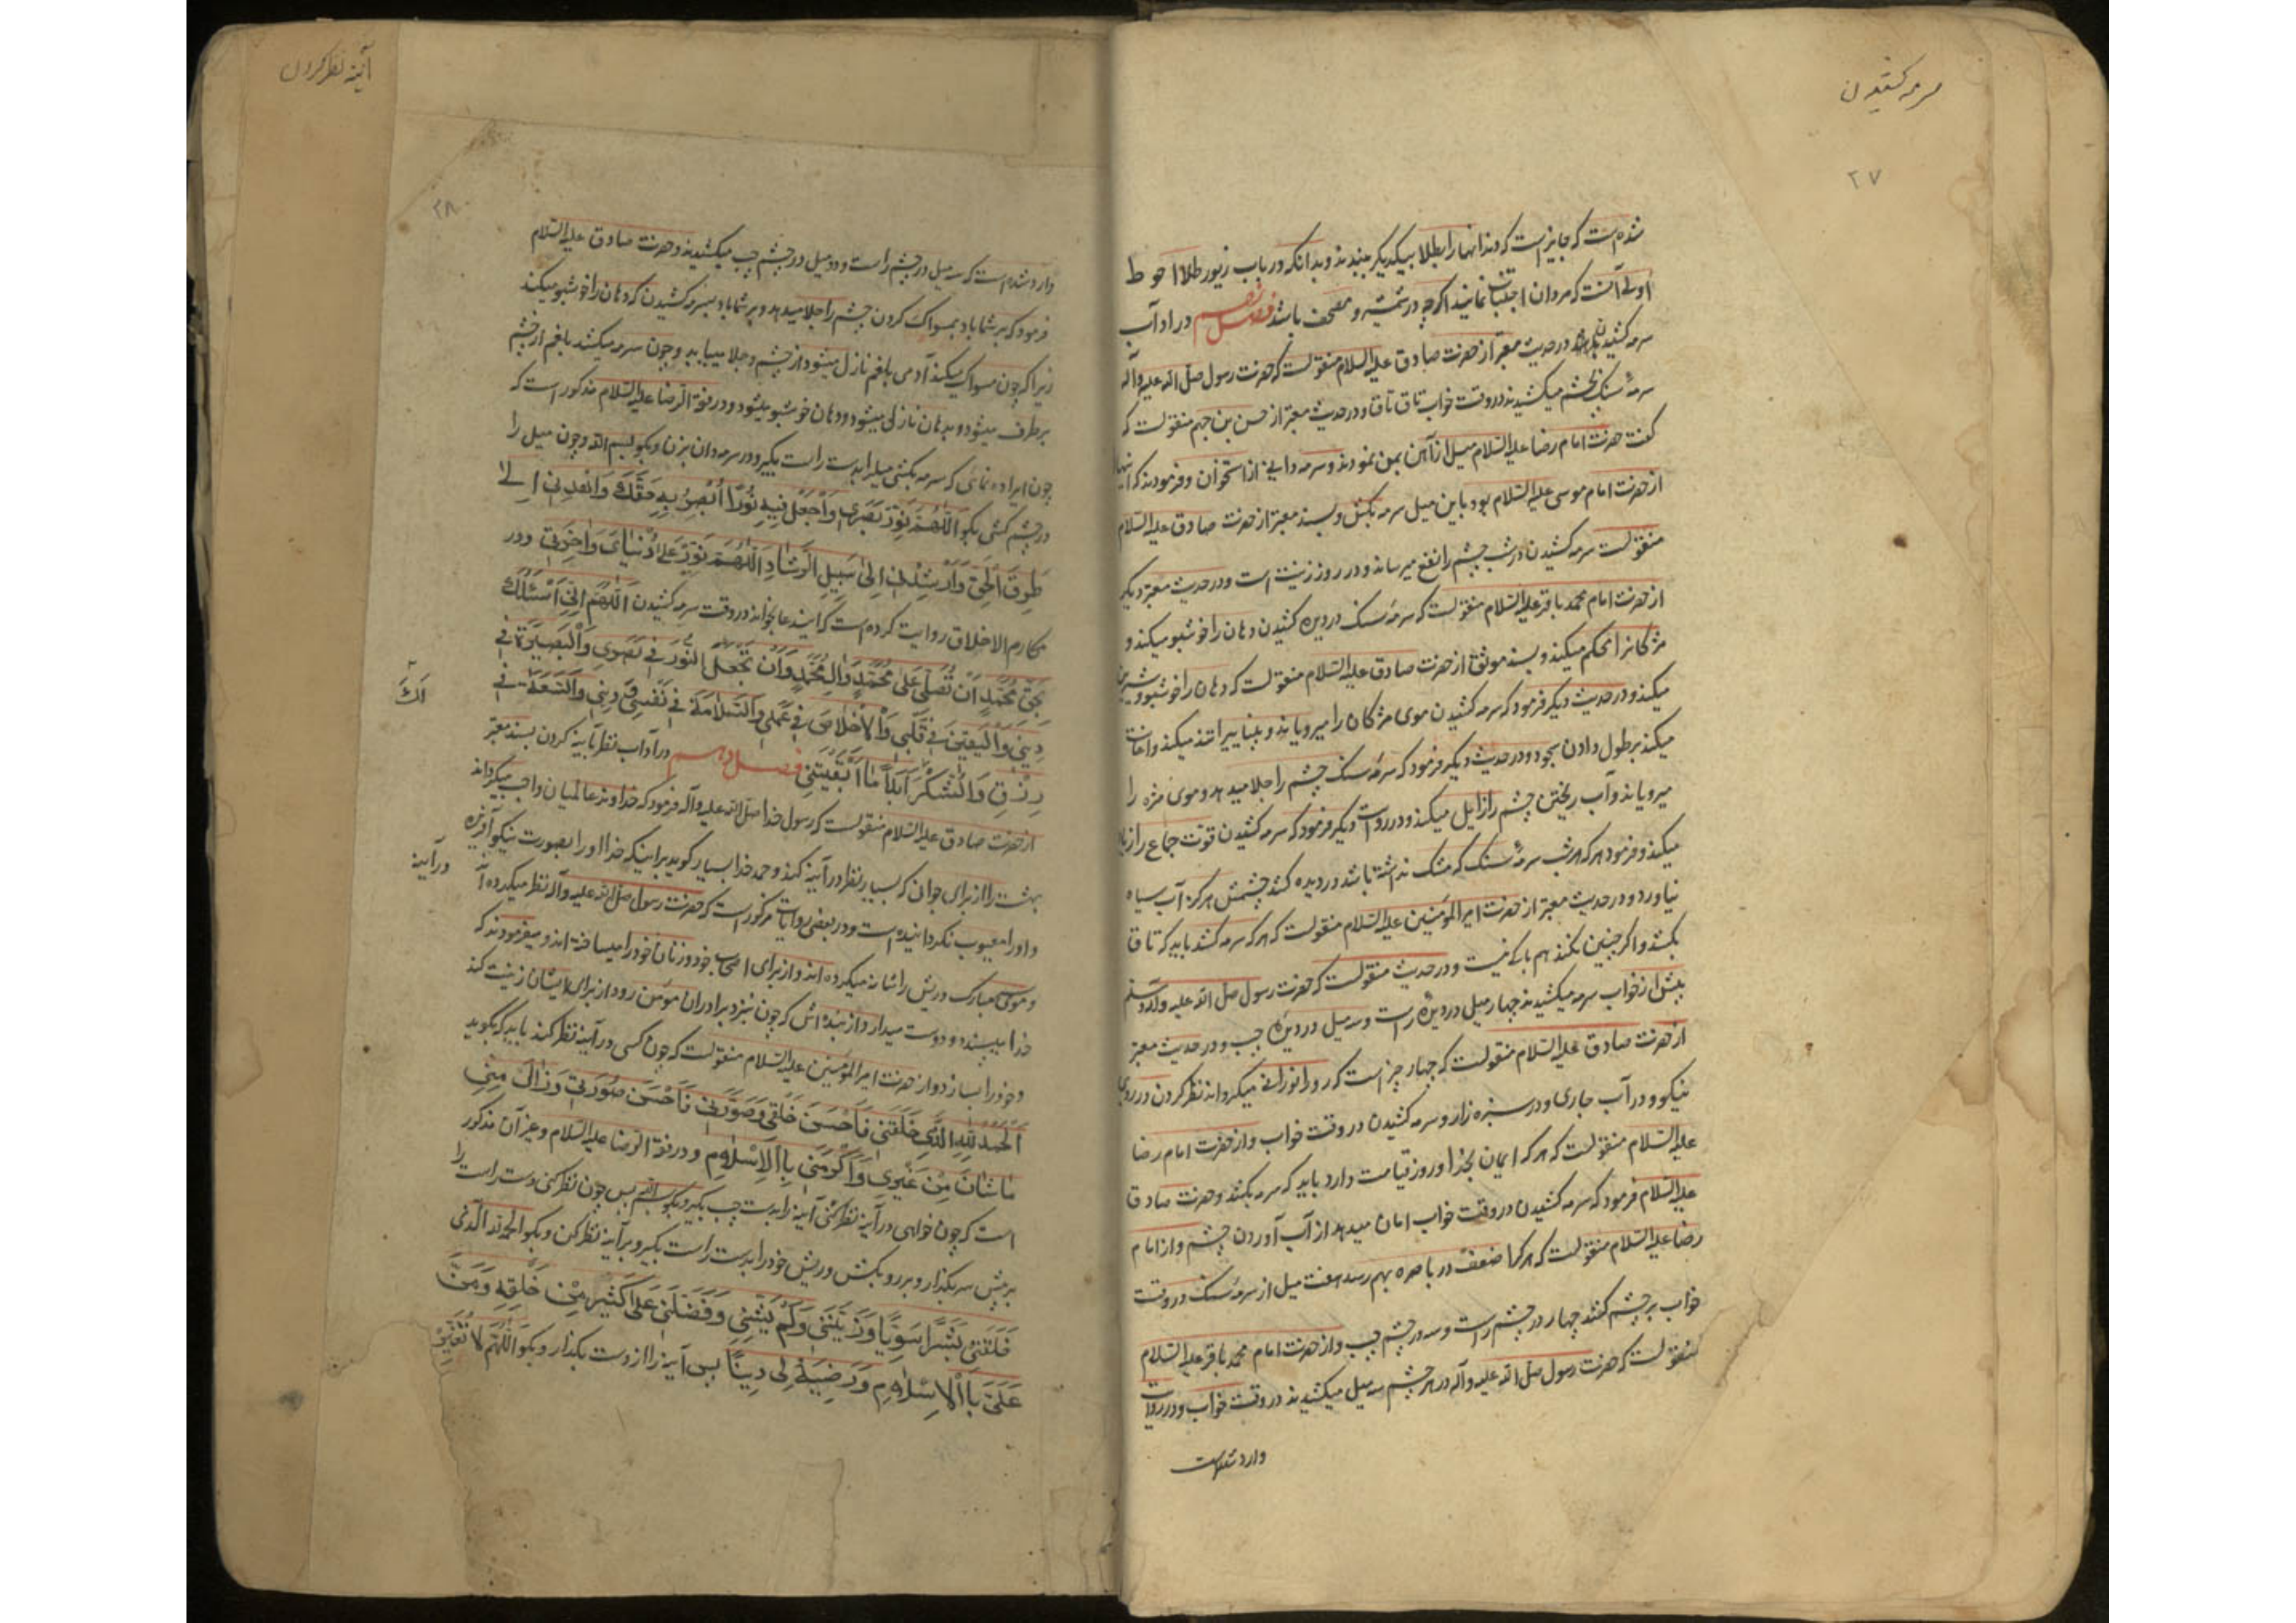 سرمه کشیدن
۲۷
شده است که جایز است که دندانها را بطلا بیکدیگر ببندند و بدانکه در باب زیور طلا احوط
اولی آنست که مردان اجتناب نمایند اگرچه در شمشیر و مصحف باشد فصل نهم در آداب
سرمه کشیدن در حدیث معتبر از حضرت صادق علیه السلام منقولست که حضرت رسول صلی الله علیه وآله
سرمهٔ سنک بچشم میکشیدند در وقت خواب تاق تاق و در حدیث معتبر از حسن بن جهم منقولست که
گفت حضرت امام رضا علیه السلام میل از آهن بمن نمودند و سرمه دانی از استخوان و فرمودند که اینها
از حضرت امام موسی علیه السلام بود باین میل سرمه بکش و بسند معتبر از حضرت صادق علیه السلام
منقولست سرمه کشیدن در شب چشم را نفع میرساند و در روز زینت است و در حدیث معتبر دیگر
از حضرت امام محمد باقر علیه السلام منقولست که سرمهٔ سنک در دیده کشیدن دهان را خوشبو میکند و
مژگانرا محکم میکند و بسند موثق از حضرت صادق علیه السلام منقولست که دهان را خوشبو و شیرین
میکند و در حدیث دیگر فرمود که سرمه کشیدن موی مژگان را میرویاند و بینایی را تند میکند و اعانت
میکند بر طول دادن سجود و در حدیث دیگر فرمود که سرمهٔ سنک چشم را جلا میدهد و موی مژه را
میرویاند و آب ریختن چشم را زایل میکند و در روایت دیگر فرمود که سرمه کشیدن قوت جماع را زیاد
میکند و فرمود هر که هر شب سرمهٔ سنک که مشک نداشته باشد در دیده کشد چشمش هرگز آب سیاه
نیاورد و در حدیث معتبر از حضرت امیر المؤمنین علیه السلام منقولست که هر که سرمه کشد باید که تاق
بکشد و اگر چنین نکند هم باکی نیست و در حدیث منقولست که حضرت رسول صلی الله علیه وآله وسلم
پیش از خواب سرمه میکشیدند چهار میل در دیدهٔ راست و سه میل در دیدهٔ چپ و در حدیث معتبر
از حضرت صادق علیه السلام منقولست که چهار چیز است که رو را نورانی میگرداند نظر کردن در روی
نیکو و در آب جاری و در سبزه زار و سرمه کشیدن در وقت خواب و از حضرت امام رضا
علیه السلام منقولست که هر که ایمان بخدا و روز قیامت دارد باید که سرمه بکشد و حضرت صادق
علیه السلام فرمود که سرمه کشیدن در وقت خواب امان میدهد از آب آوردن چشم و از امام
رضا علیه السلام منقولست که هر که را ضعف در باصره بهم رسد هفت میل از سرمهٔ سنک در وقت
خواب بر چشم کشد چهار در چشم راست و سه در چشم چپ و از حضرت امام محمد باقر علیه السلام
منقولست که حضرت رسول صلی الله علیه وآله در هر چشم سه میل میکشیدند در وقت خواب و در روایت
وارد شده است
آئینه نظر کردن
۲۸
وارد شده است که سه میل در چشم راست و دو میل در چشم چپ میکشیدند و حضرت صادق علیه السلام
فرمود که بر شما باد بمسواک کردن که چشم را جلا میدهد و بر شما باد بسرمه کشیدن که دهان را خوشبو میکند
زیرا که چون مسواک میکند آدمی بلغم نازل میشود از چشم و جلا مییابد و چون سرمه میکشد بلغم از چشم
برطرف میشود و بدهان نازل میشود و دهان خوشبو میشود و در فقه الرضا علیه السلام مذکور است که
چون اراده نمائی که سرمه بکشی میل را بدست راست بگیر و در سرمه دان بزن و بگو بسم الله و چون میل را
در چشم کشی بگو اللهم نور بصری واجعل فیه نورا ابصر به حقک واهدنی الی
طریق الحق وارشدنی الی سبیل الرشاد اللهم نور علی دنیای وآخرتی و در
مکارم الاخلاق روایت کرده است که این دعا بخواند در وقت سرمه کشیدن اللهم انی اسئلک
بحق محمد ان تصلی علی محمد وال محمد وان تجعل النور فی بصری والبصیرة فی
دینی والیقین فی قلبی والاخلاص فی عملی والسلامة فی نفسی والسعة فی
لک
رزقی والشکر ابدا ما ابقیتنی فصل دهم در آداب نظر بآینه کردن بسند معتبر
از حضرت صادق علیه السلام منقولست که رسول خدا صلی الله علیه وآله فرمود که خداوند عالمیان واجب میگرداند
بهشت را از برای جوانی که بسیار نظر در آینه کند و حمد خدا بسیار گوید برای اینکه خدا او را بصورت نیکو آفریده
و او را معیوب نگردانیده است و در بعضی روایات مذکور است که حضرت رسول صلی الله علیه وآله نظر میکرده
در آینه
و موی مبارک و ریش را شانه میکرده اند و از برای اصحاب خود و زنان خود را میساخته اند و میفرمودند که
خدا میپسندد و دوست میدارد از بنده اش که چون بنزد برادران مؤمن رود از برای ایشان زینت کند
و خود را بسازد و از حضرت امیر المؤمنین علیه السلام منقولست که چون کسی در آینه نظر کند باید که بگوید
الحمد لله الذی خلقنی فاحسن خلقی وصورنی فاحسن صورتی وزان منی
ماشان من غیری واکرمنی بالاسلام و در فقه الرضا علیه السلام و غیر آن مذکور
است که چون خواهی در آینه نظر کنی آینه را بدست چپ بگیر و بگو بسم الله پس چون نظر کنی دست راست را
بر پیش سر بگذار و بر رو بکش و ریش خود را بدست راست بگیر و بر آینه نظر کن و بگو الحمد لله الذی
خلقنی بشرا سویا وزیننی ولم یشنی وفضلنی علی کثیر من خلقه ومن
علی بالاسلام ورضیه لی دینا پس آینه را از دست بگذار و بگو اللهم لا تغیر